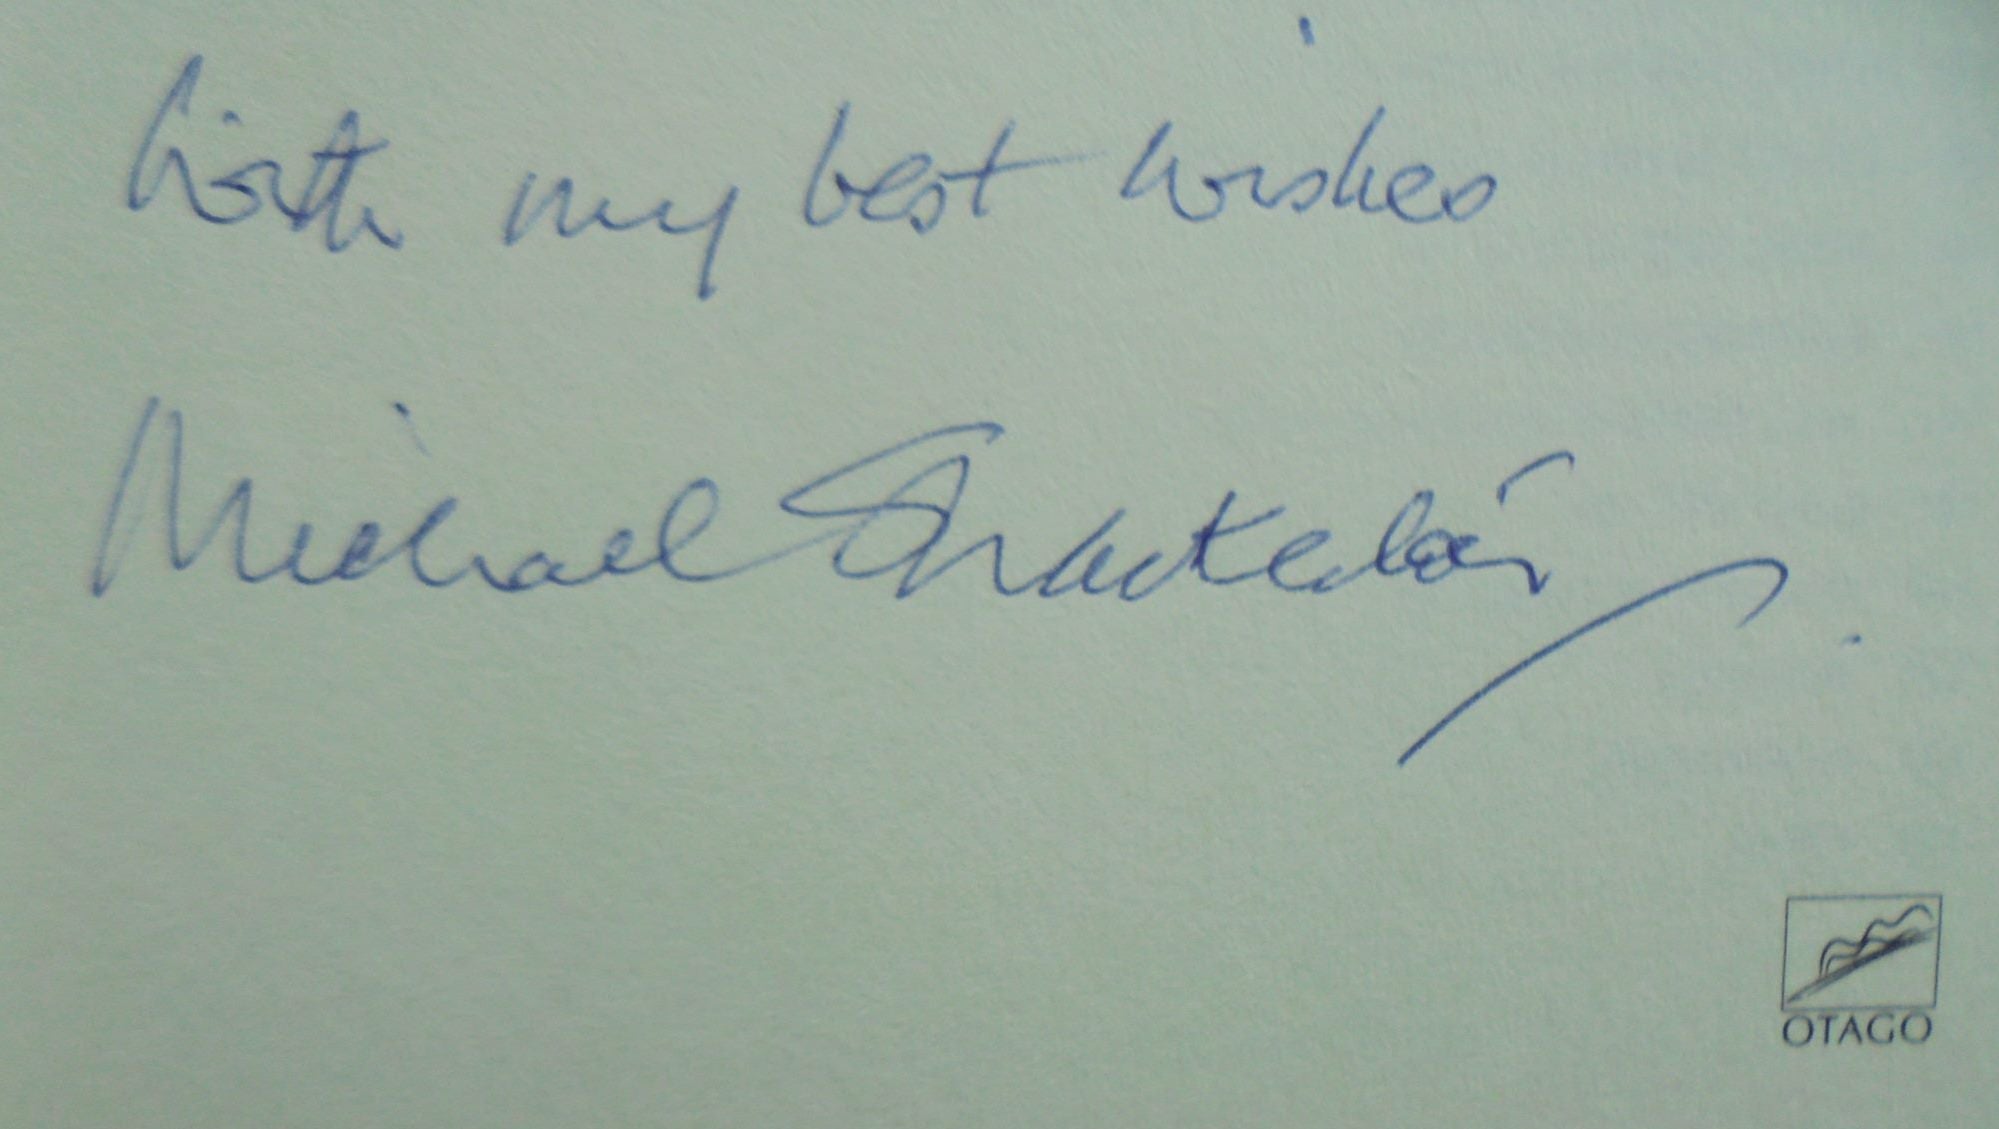 with my best wishes
Michael Shackleton
OTAGO